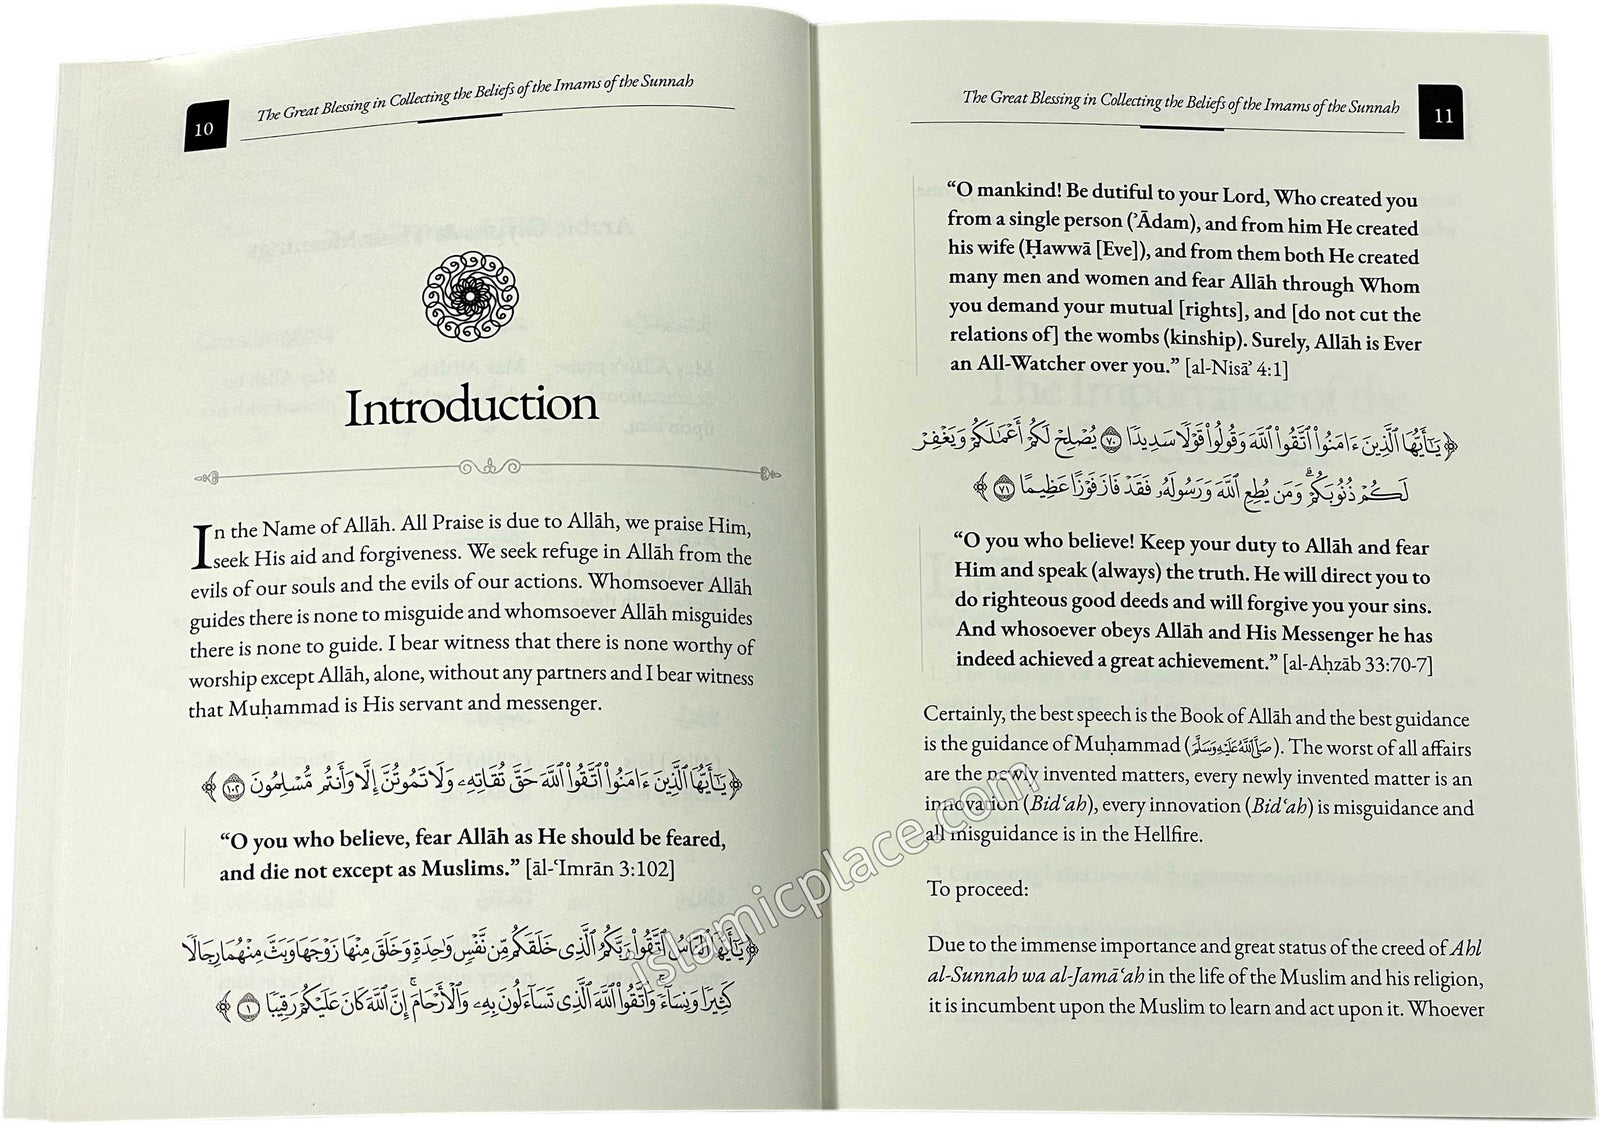 10
The Great Blessing in Collecting the Beliefs of the Imams of the Sunnah
Introduction
In the Name of Allāh. All Praise is due to Allāh, we praise Him,
seek His aid and forgiveness. We seek refuge in Allāh from the
evils of our souls and the evils of our actions. Whomsoever Allāh
guides there is none to misguide and whomsoever Allāh misguides
there is none to guide. I bear witness that there is none worthy of
worship except Allāh, alone, without any partners and I bear witness
that Muḥammad is His servant and messenger.
﴿يَـٰٓأَيُّهَا ٱلَّذِينَ ءَامَنُوا۟ ٱتَّقُوا۟ ٱللَّهَ حَقَّ تُقَاتِهِۦ وَلَا تَمُوتُنَّ إِلَّا وَأَنتُم مُّسْلِمُونَ ١٠٢﴾
“O you who believe, fear Allāh as He should be feared,
and die not except as Muslims.” [āl-ʿImrān 3:102]
﴿يَـٰٓأَيُّهَا ٱلنَّاسُ ٱتَّقُوا۟ رَبَّكُمُ ٱلَّذِى خَلَقَكُم مِّن نَّفْسٍ وَٰحِدَةٍ وَخَلَقَ مِنْهَا زَوْجَهَا وَبَثَّ مِنْهُمَا رِجَالًا
كَثِيرًا وَنِسَآءً ۚ وَٱتَّقُوا۟ ٱللَّهَ ٱلَّذِى تَسَآءَلُونَ بِهِۦ وَٱلْأَرْحَامَ ۚ إِنَّ ٱللَّهَ كَانَ عَلَيْكُمْ رَقِيبًا ١﴾
The Great Blessing in Collecting the Beliefs of the Imams of the Sunnah
11
“O mankind! Be dutiful to your Lord, Who created you
from a single person (ʾĀdam), and from him He created
his wife (Ḥawwā [Eve]), and from them both He created
many men and women and fear Allāh through Whom
you demand your mutual [rights], and [do not cut the
relations of] the wombs (kinship). Surely, Allāh is Ever
an All-Watcher over you.” [al-Nisāʾ 4:1]
﴿يَـٰٓأَيُّهَا ٱلَّذِينَ ءَامَنُوا۟ ٱتَّقُوا۟ ٱللَّهَ وَقُولُوا۟ قَوْلًا سَدِيدًا ٧٠ يُصْلِحْ لَكُمْ أَعْمَـٰلَكُمْ وَيَغْفِرْ
لَكُمْ ذُنُوبَكُمْ ۗ وَمَن يُطِعِ ٱللَّهَ وَرَسُولَهُۥ فَقَدْ فَازَ فَوْزًا عَظِيمًا ٧١﴾
“O you who believe! Keep your duty to Allāh and fear
Him and speak (always) the truth. He will direct you to
do righteous good deeds and will forgive you your sins.
And whosoever obeys Allāh and His Messenger he has
indeed achieved a great achievement.” [al-Aḥzāb 33:70-7]
Certainly, the best speech is the Book of Allāh and the best guidance
is the guidance of Muḥammad (صَلَّى اللهُ عَلَيْهِ وَسَلَّمَ). The worst of all affairs
are the newly invented matters, every newly invented matter is an
innovation (Bidʿah), every innovation (Bidʿah) is misguidance and
all misguidance is in the Hellfire.
To proceed:
Due to the immense importance and great status of the creed of Ahl
al-Sunnah wa al-Jamāʿah in the life of the Muslim and his religion,
it is incumbent upon the Muslim to learn and act upon it. Whoever
islamicplace.com